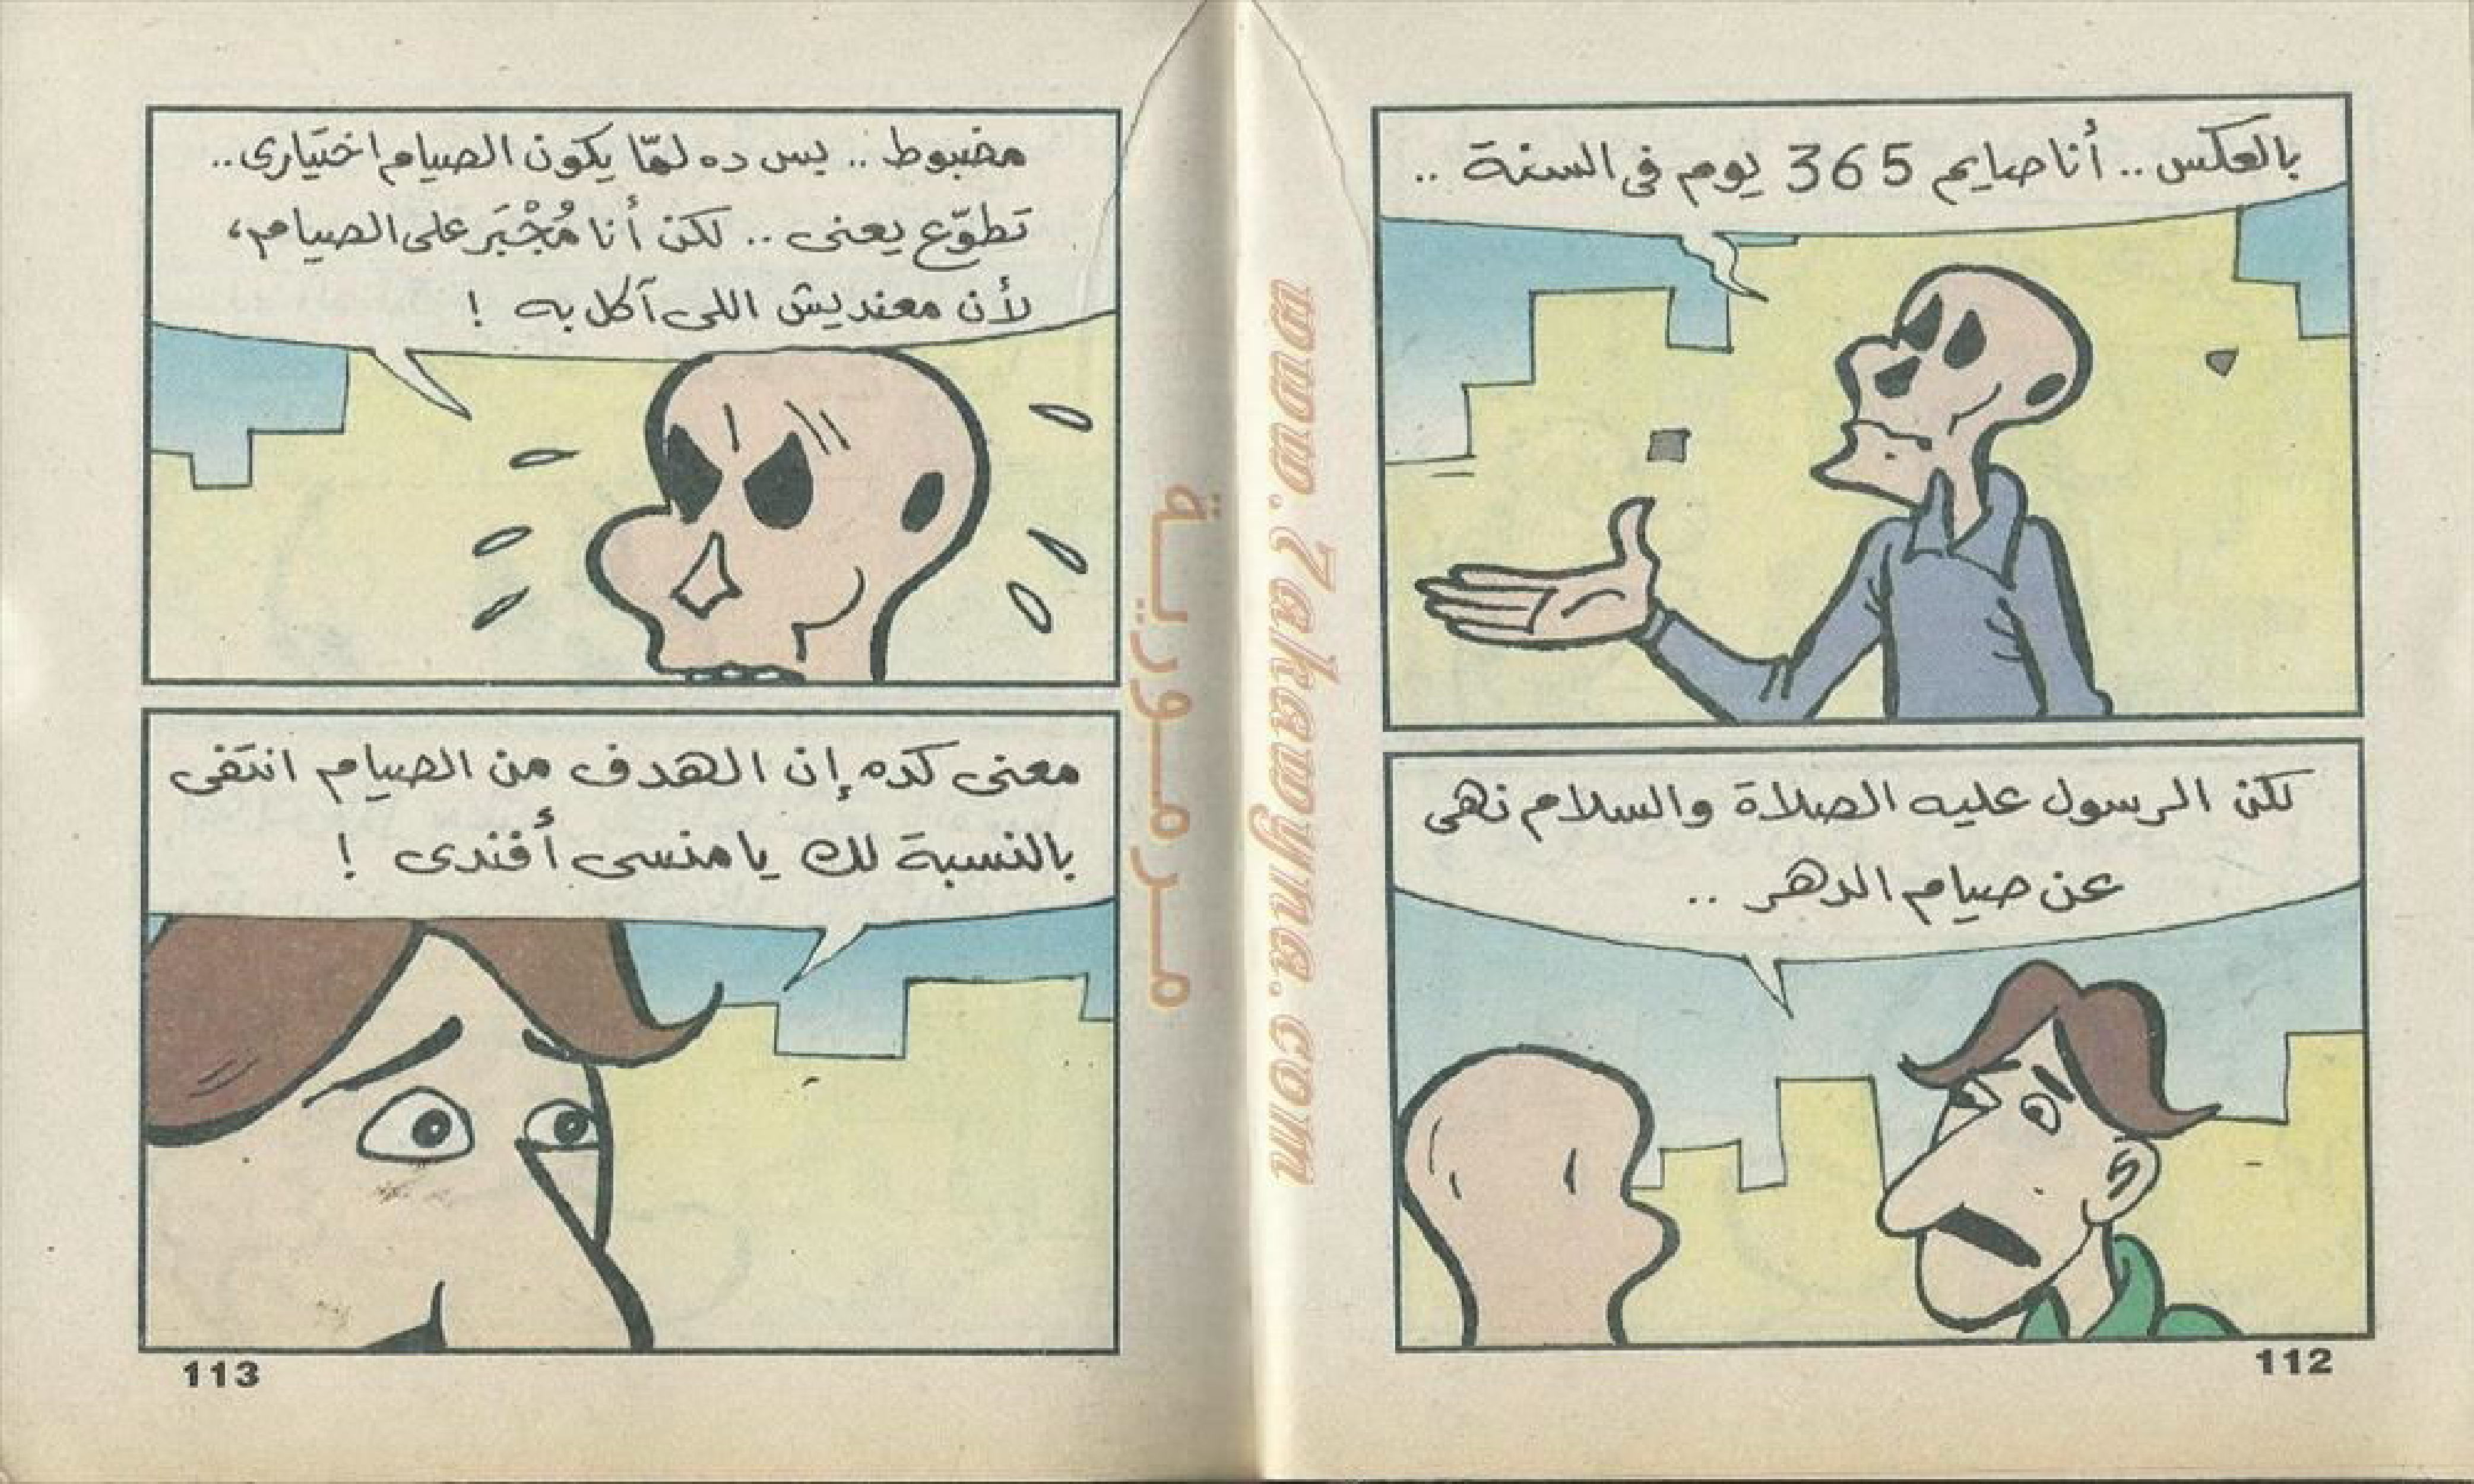 بالعكس .. أنا صايم 365 يوم فى السنة ..
لكن الرسول عليه الصلاة والسلام نهى
عن صيام الدهر ..
112
مضبوط .. بس ده لمّا يكون الصيام اختيارى ..
تَطوّع يعنى .. لكن أنا مُجْبَر على الصيام،
لأن معنديش اللى آكل به !
معنى كده إن الهدف من الصيام انتفى
بالنسبة لك يا منسى أفندى !
113
مرمورية
www.7akawyna.com